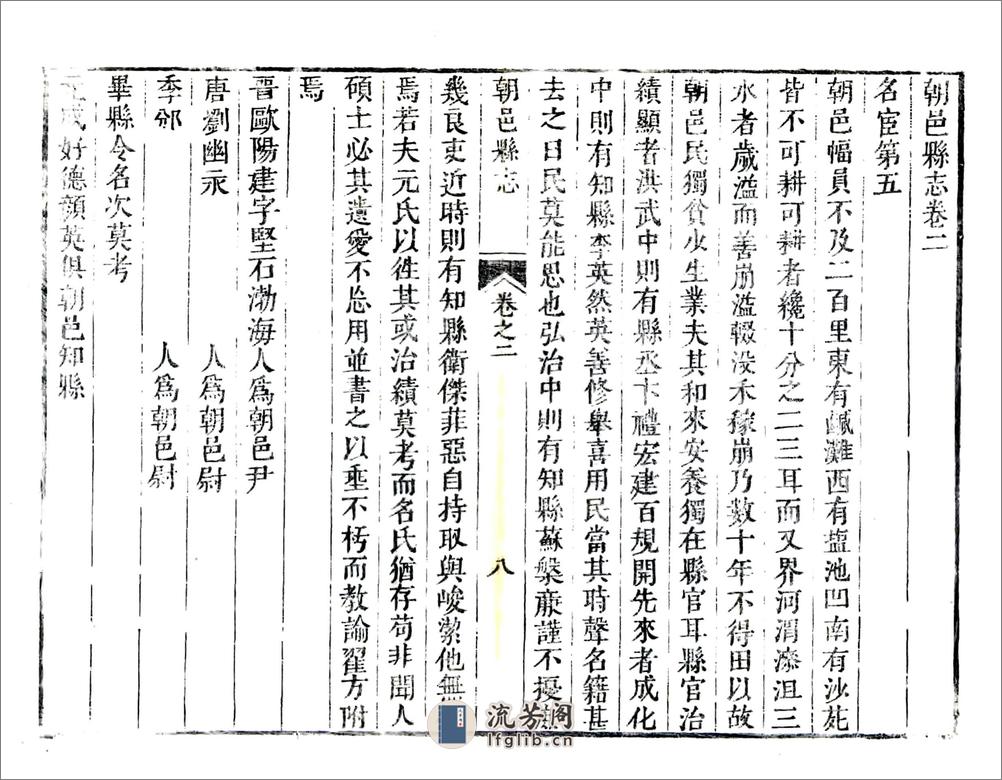 朝邑縣志卷二
名宦第五
朝邑幅員不及二百里東有鹹灘西有塩池凹南有沙苑
皆不可耕可耕者纔十分之二三耳而又界河渭漆沮三
水者歲溢而善崩溢輟没禾稼崩乃数十年不得田以故
朝邑民獨貧少生業夫其和來安養獨在縣官耳縣官治
績顯者洪武中則有縣丞卞禮宏建百規開先來者成化
中則有知縣李英然英善修舉喜用民當其時聲名籍甚
去之日民莫能思也弘治中則有知縣蘇槃亷謹不擾
朝邑縣志
卷之二
八
幾良吏近時則有知縣衛傑菲惡自持取與峻潔他無
焉若夫元氏以徃其或治績莫考而名氏猶存苟非聞人
碩士必其遺愛不忘用並書之以垂不朽而教諭翟方附
焉
晋歐陽建字堅石渤海人爲朝邑尹
唐瀏幽永 人爲朝邑尉
季邠 人爲朝邑尉
畢縣令名次莫考
好德顔英俱朝邑知縣
流芳阁
lfglib.cn